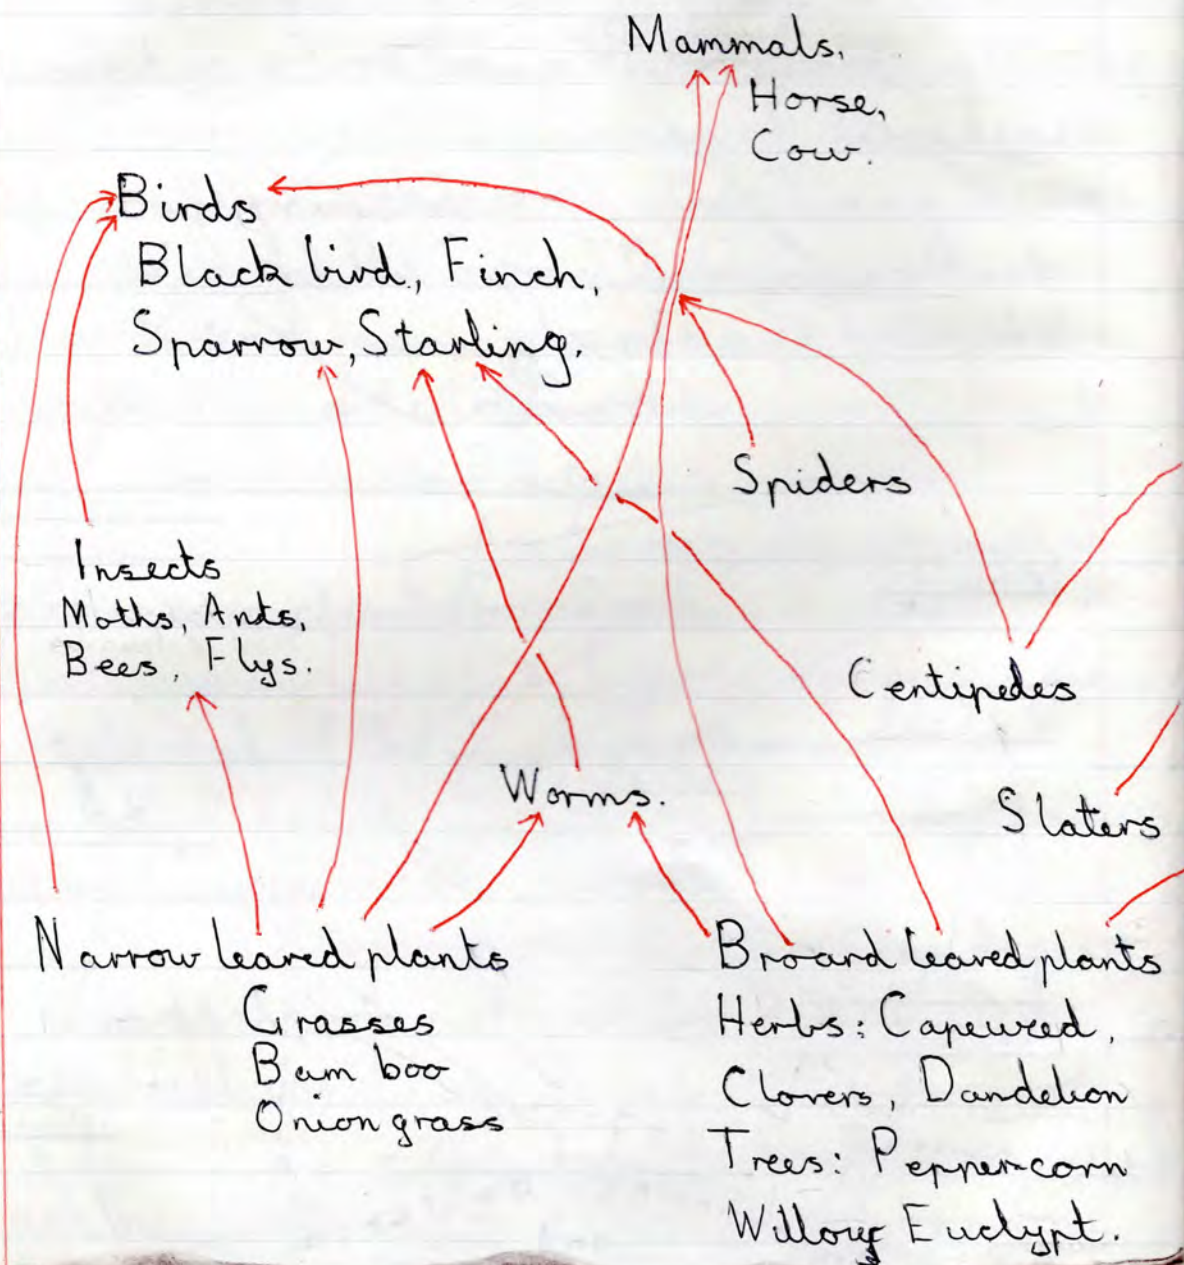 Mammals.
Horse,
Cow.
Birds
Black bird, Finch,
Sparrow, Starling.
Spiders
Insects
Moths, Ants,
Bees, Flys.
Centipedes
Worms.
Slaters
Narrow leaved plants
Grasses
Bam boo
Onion grass
Broard leaved plants
Herbs: Capeweed,
Clovers, Dandelion
Trees: Peppercorn
Willow, Euclypt.